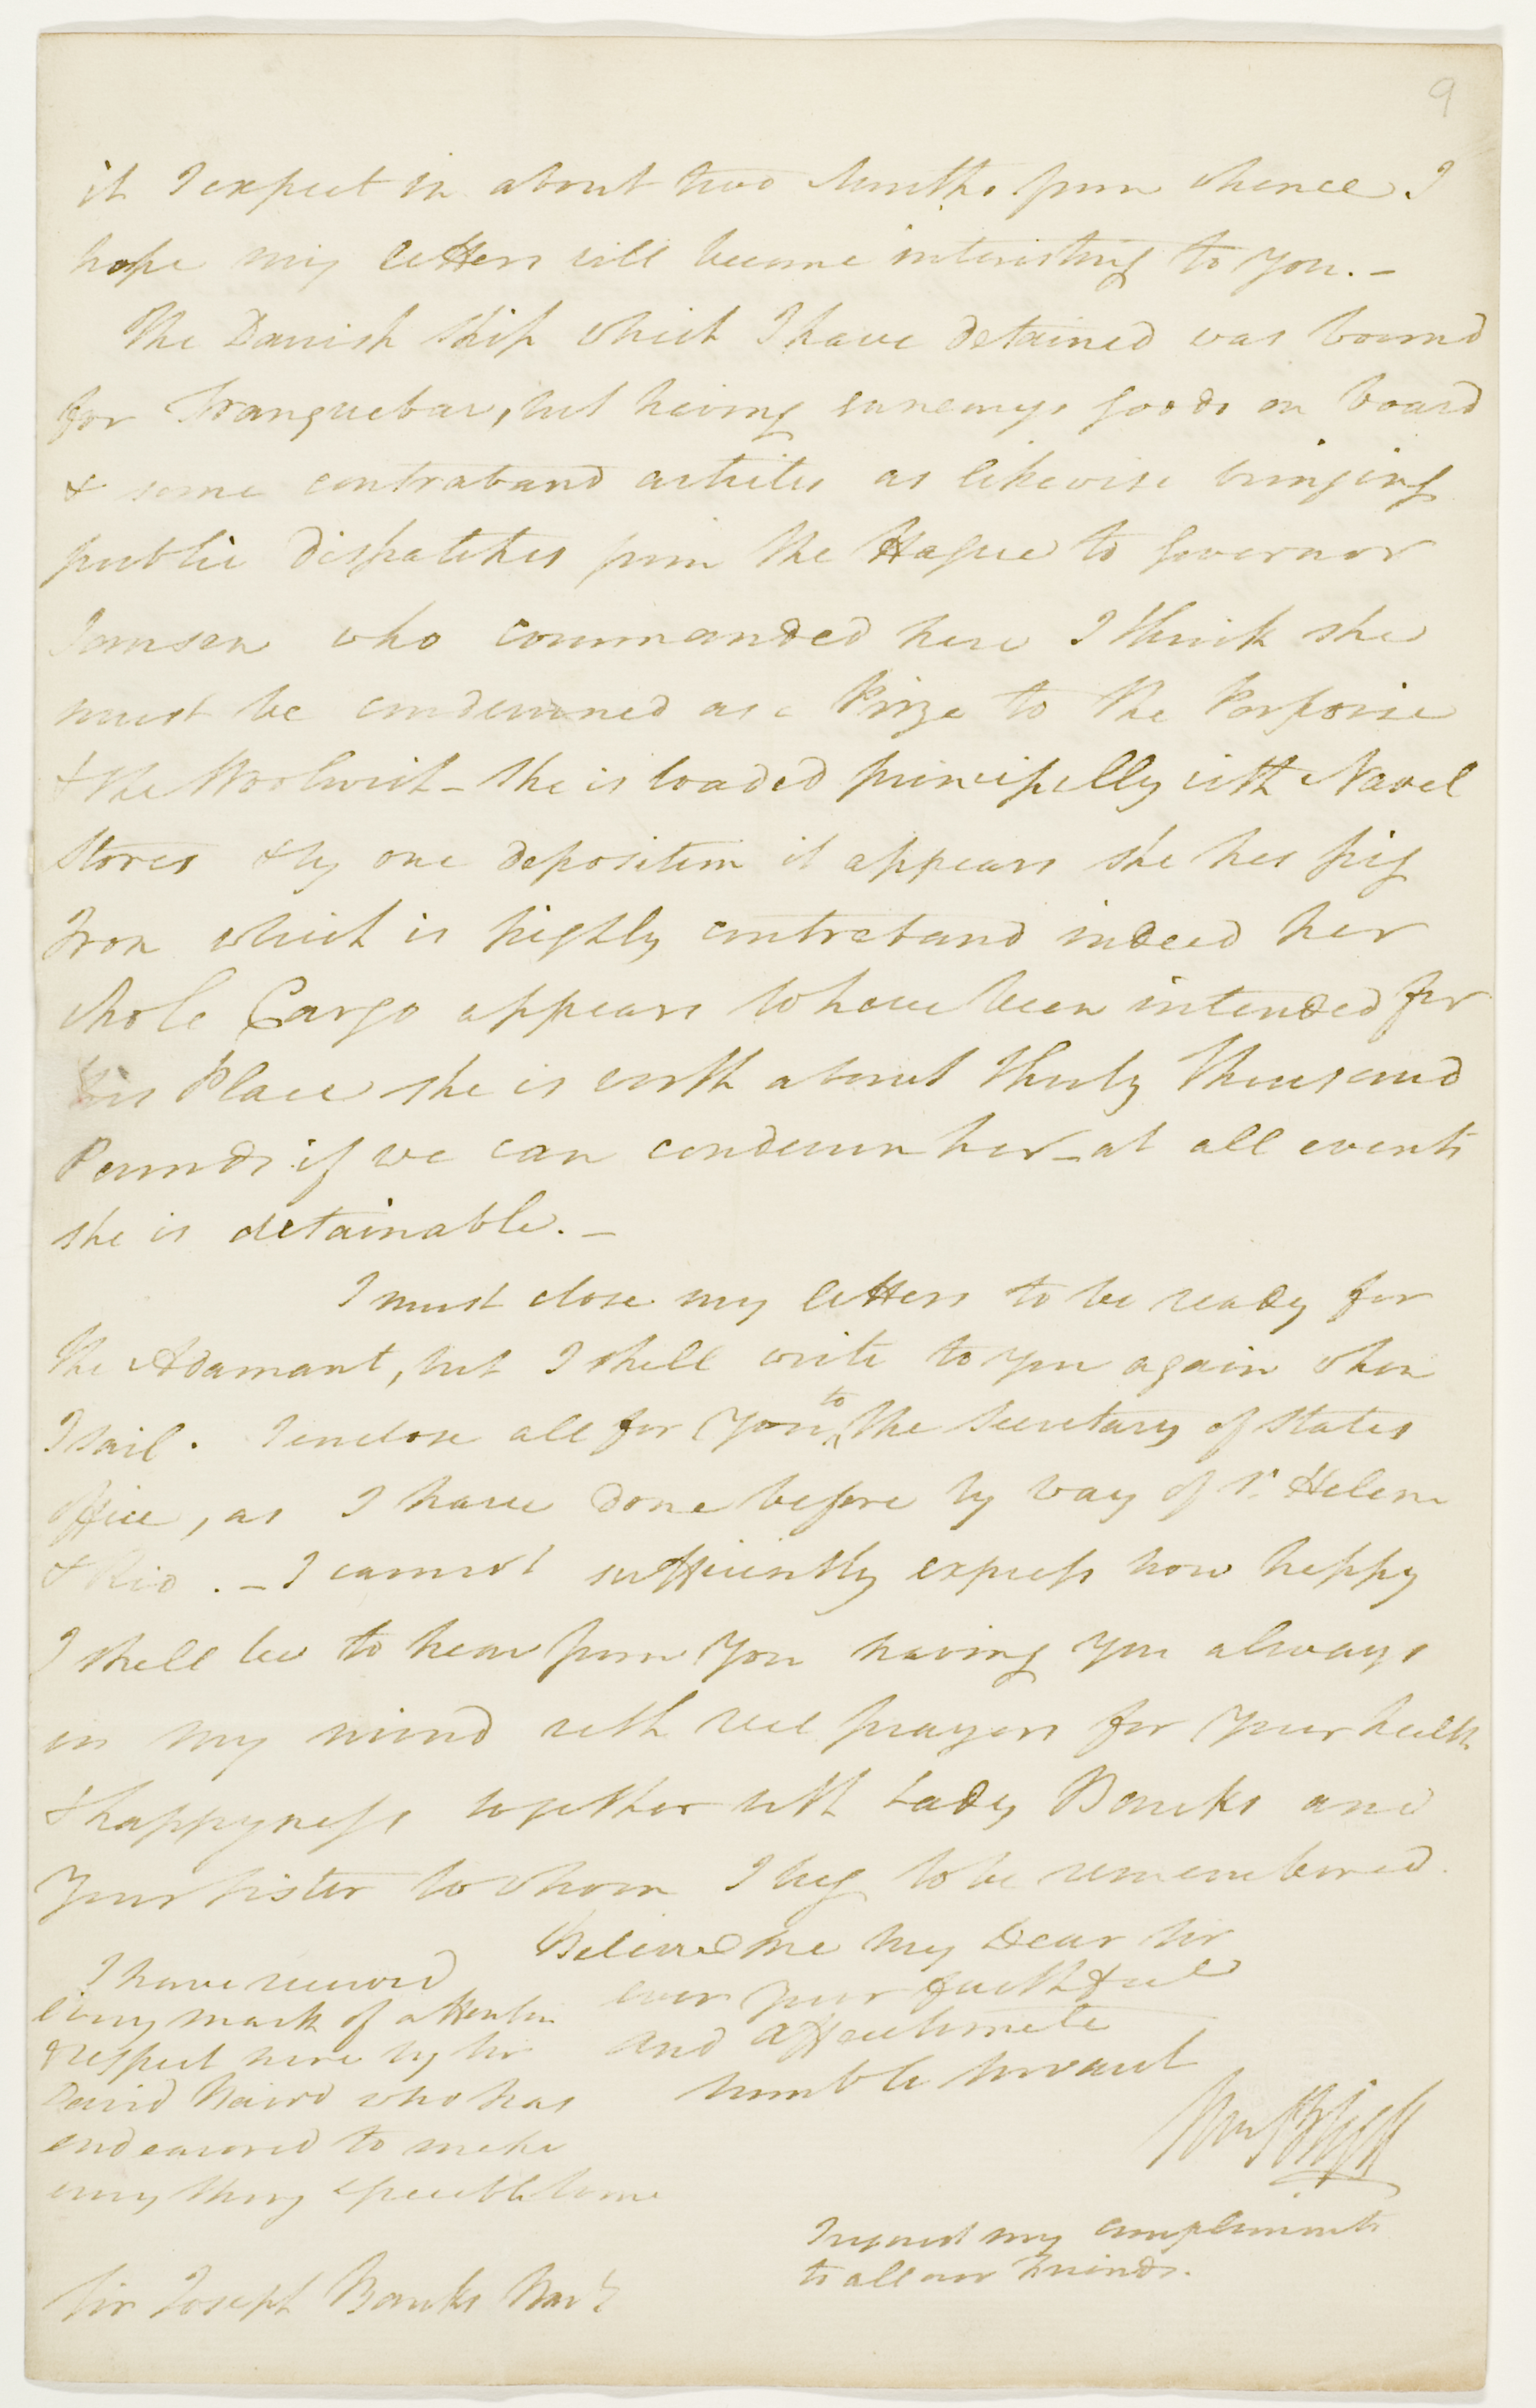 9
it I expect in about two Months from whence I
hope my letters will become interesting to you. –
The Danish Ship which I have detained was bound
for Tranquebar, but having enemys goods on board
& some contraband articles as likewise bringing
public dispatches from the Hague to Governor
Jansen who commanded here I think she
must be condemned as a Prize to the Porpoise
& the Woolwich – She is loaded principally with Naval
Stores & by one deposition it appears she has pig
Iron which is highly contraband indeed her
whole Cargo appears to have been intended for
this Place she is worth about Thirty Thousand
Pounds if we can condemn her – at all events
she is detainable. –
I must close my letters to be ready for
the Adamant, but I shall write to you again when
to
I sail. I enclose all for you ^ the Secretary of States
office, as I have done before by way of St. Helena
& Rio. – I cannot sufficiently express how happy
I shall be to hear from you having you always
in my mind with real prayers for your health
& happyness together with Lady Banks and
Your Sister to whom I beg to be remembered.
Believe me my Dear Sir
ever your faithful
and affectionate
humble servant
Wm Bligh
I have received
every mark of attention
& respect here by Sir
David Baird who has
endeavored to make
every thing agreeable to me
I request my compliments
to all our Friends.
Sir Joseph Banks Bart